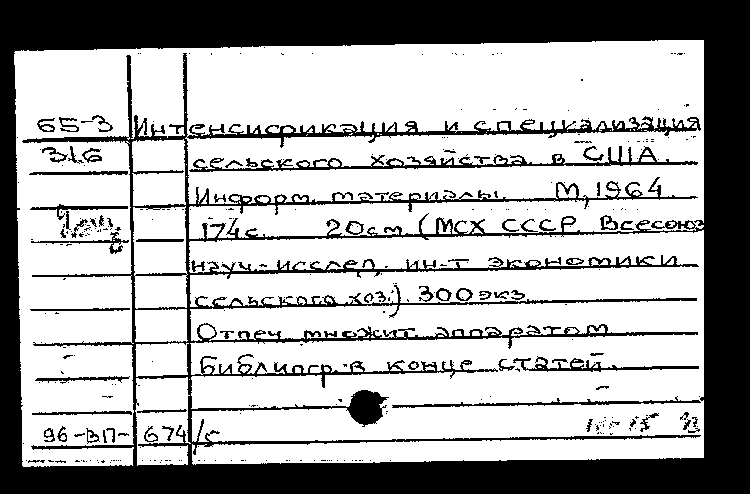 65-3 Интенсификация и специализация
316 сельского хозяйства в США.
Информ. материалы. М, 1964.
174с. 20см. (МСХ СССР. Всесоюз
науч.-исслед. ин-т экономики
сельского хоз.). 300 экз
Отпеч. множит. аппаратом
Библиогр. в конце статей.
96-ВП-674/5